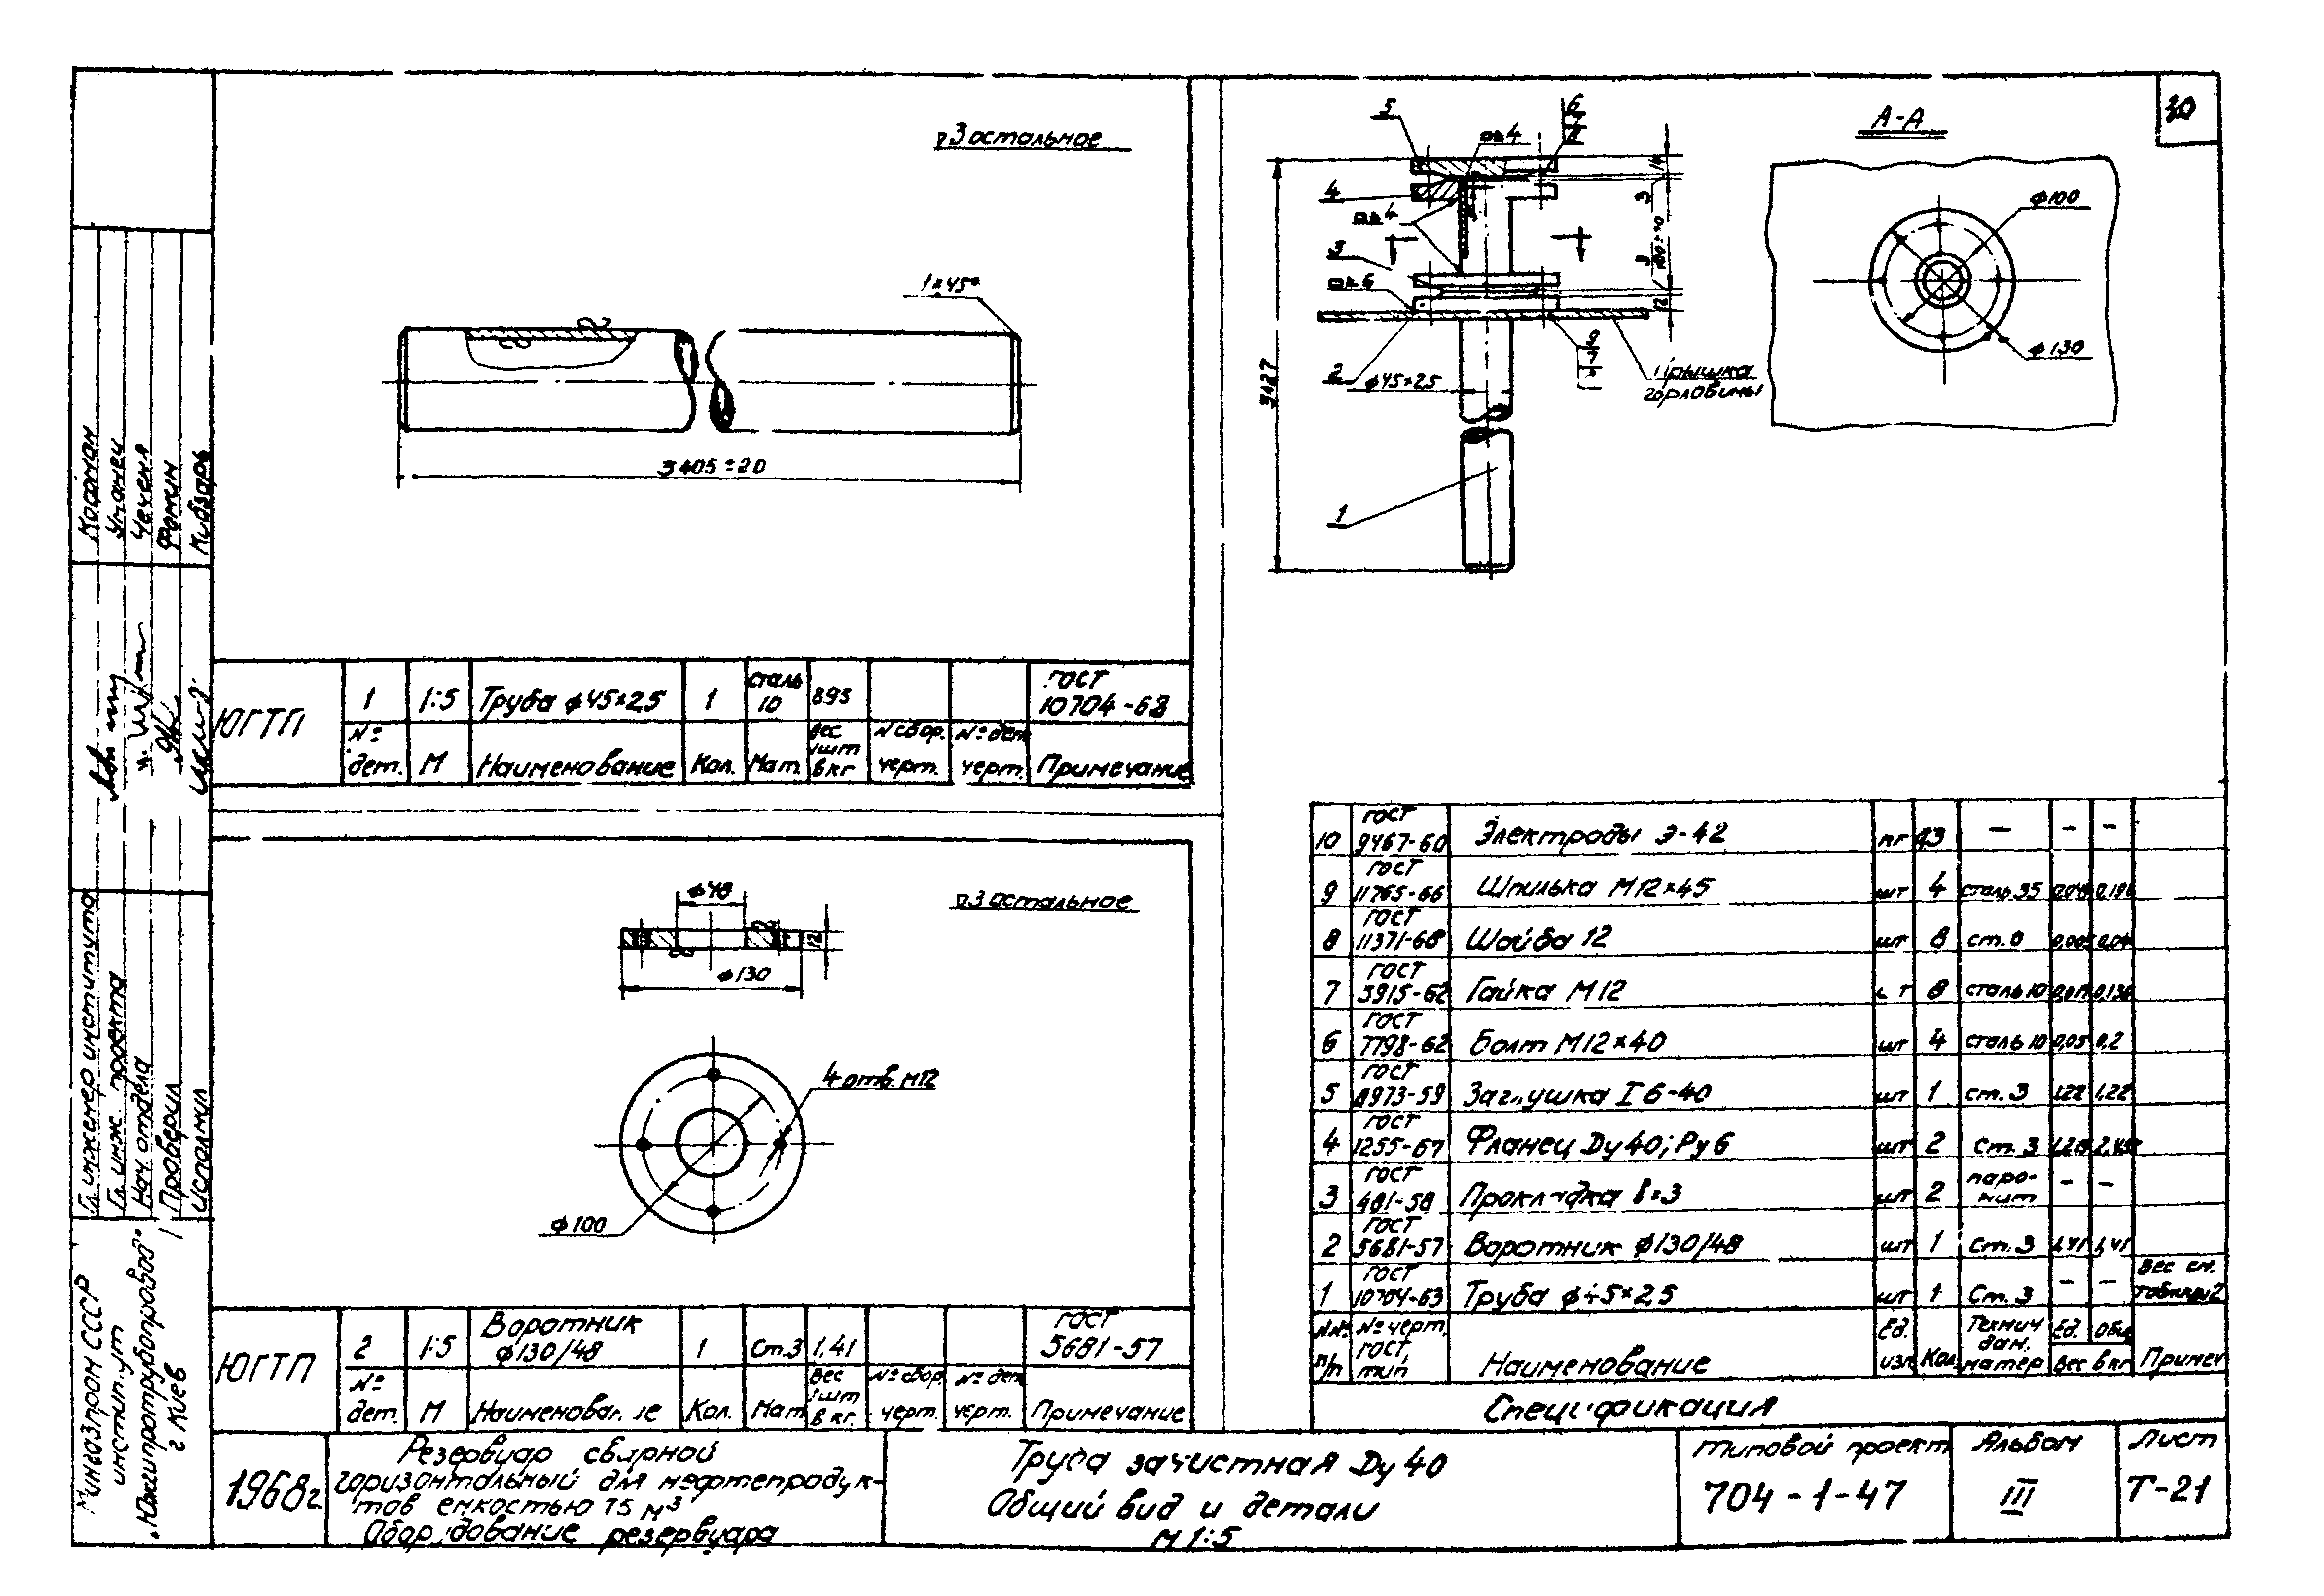 ∇3 остальное
1×45°
3405±20
ЮГТП
1
1:5
Труба ф45×2,5
1
сталь 10
8.93
ГОСТ
10704-63
№ дет.
М
Наименование
Кол.
Мат.
Вес 1шт в кг
№ сбор. черт.
№ дет. черт.
Примечание
∇3 остальное
ф48
12
ф130
4 отв. М12
ф100
ЮГТП
2
1:5
Воротник
ф130/48
1
Ст.3
1,41
ГОСТ
5681-57
№ дет.
М
Кол.
Мат
Вес 1шт в кг.
№ сбор. черт.
№ дет. черт.
Примечание
5
6
4
4
4
3
6
2
ф45×2,5
9
7
горловины
3427
14
3
12
1
А-А
ф100
ф130
10 ГОСТ 9467-60 Электроды Э-42 – – –
9 ГОСТ 11765-66 Шпилька М12×45 шт 4 сталь 35
8 ГОСТ 11371-68 Шайба 12 шт 8 ст. 0
7 ГОСТ 5915-62 Гайка М12 8 сталь 10
6 ГОСТ 7798-62 Болт М12×40 шт 4 сталь 10 0,05 0,2
5 ГОСТ 6973-59 Заглушка I 6-40 шт 1 ст. 3 1,22 1,22
4 ГОСТ 1255-67 Фланец Dy40; Ру6 шт 2 Ст. 3
3 ГОСТ 481-58 Прокладка шт 2 паронит – –
2 ГОСТ 5681-57 Воротник ф130/48 шт 1 Ст. 3 1,41 1,41
1 ГОСТ 10704-63 Труба ф45×2,5 шт 1 Ст. 3 – – Вес см. таблицу 2
№№ п/п
№ черт. ГОСТ, тип
Наименование
Ед. изм
Кол.
Технич дан. матер
Ед. Общ
Вес в кг
Примеч
Спецификация
Гл. инженер института
Косман
Гл. инж. проекта
Уманец
Нач. отдела
Проверил
Фомин
Исполнил
Мингазпром СССР
институт
„Южгипротрубопровод"
г Киев
1968г.
Резервуар сварной
горизонтальный для нефтепродук-
тов емкостью 75 м³
Оборудование резервуара
Труба зачистная Dy 40
Общий вид и детали
М 1:5
Типовой проект
704-1-47
Альбом
III
Лист
Т-21